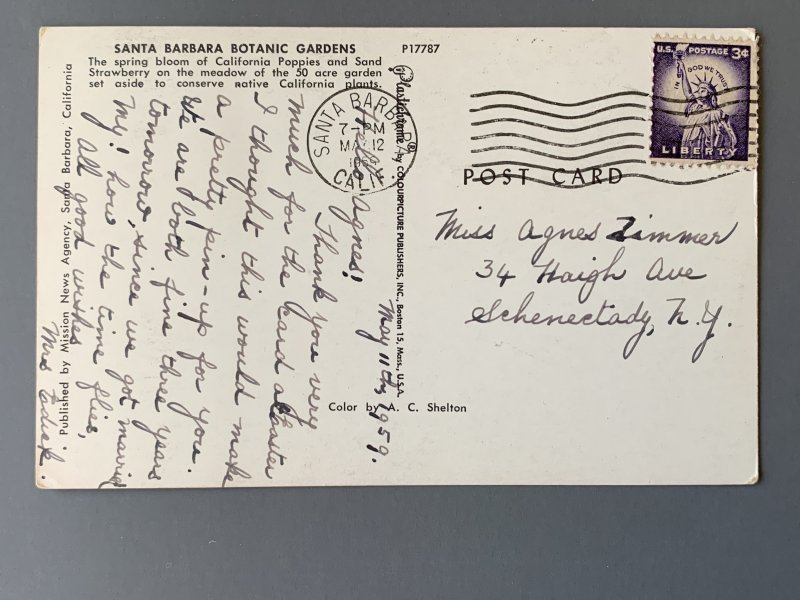 SANTA BARBARA BOTANIC GARDENS
P17787
The spring bloom of California Poppies and Sand
Strawberry on the meadow of the 50 acre garden
set aside to conserve native California plants.
Published by Mission News Agency, Santa Barbara, California
Plastichrome ® by COLOURPICTURE PUBLISHERS, INC., Boston 15, Mass., U.S.A.
SANTA BARBARA
7-PM
MAY 12
1959
CALIF.
U.S. POSTAGE 3¢
IN GOD WE TRUST
LIBERTY
POST CARD
Miss Agnes Zimmer
34 Haigh Ave
Schenectady, N.Y.
Color by A. C. Shelton
May 11th, 1959.
Hello Agnes!
Thank you very
much for the card at Easter
I thought this would make
a pretty pin-up for you.
We are both fine three years
tomorrow, since we got married
My! how the time flies,
All good wishes
Mrs